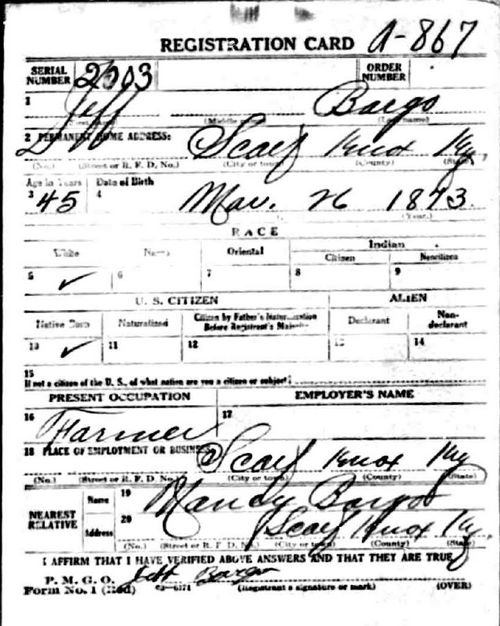 REGISTRATION CARD A-867
SERIAL NUMBER 2003 ORDER NUMBER
1 Jeff Bargo
(Middle name) (Last name)
2 PERMANENT HOME ADDRESS: Scalf Knox Ky.
(No.) (Street or R. F. D. No.) (City or town) (County) (State)
Age in Years Date of Birth
3 45 4 Mar. 26 1873.
(Year.)
RACE
White Negro Oriental Indian
Citizen Noncitizen
5 ✓ 6 7 8 9
U. S. CITIZEN ALIEN
Native Born Naturalized Citizen by Father's Naturalization Before Registrant's Majority Declarant Non-declarant
10 ✓ 11 12 13 14
15
If not a citizen of the U. S., of what nation are you a citizen or subject?
PRESENT OCCUPATION EMPLOYER'S NAME
16 Farmer 17
18 PLACE OF EMPLOYMENT OR BUSINESS: @ Scalf Knox Ky
(No.) (Street or R. F. D. No.) (City or town) (County) (State)
NEAREST RELATIVE Name 19 Mandy Bargo
Address 20 Scalf Knox Ky.
(No.) (Street or R. F. D. No.) (City or town) (County) (State)
I AFFIRM THAT I HAVE VERIFIED ABOVE ANSWERS AND THAT THEY ARE TRUE
P. M. G. O. Jeff Bargo
Form No. 1 (Red) (Registrant's signature or mark) (OVER)